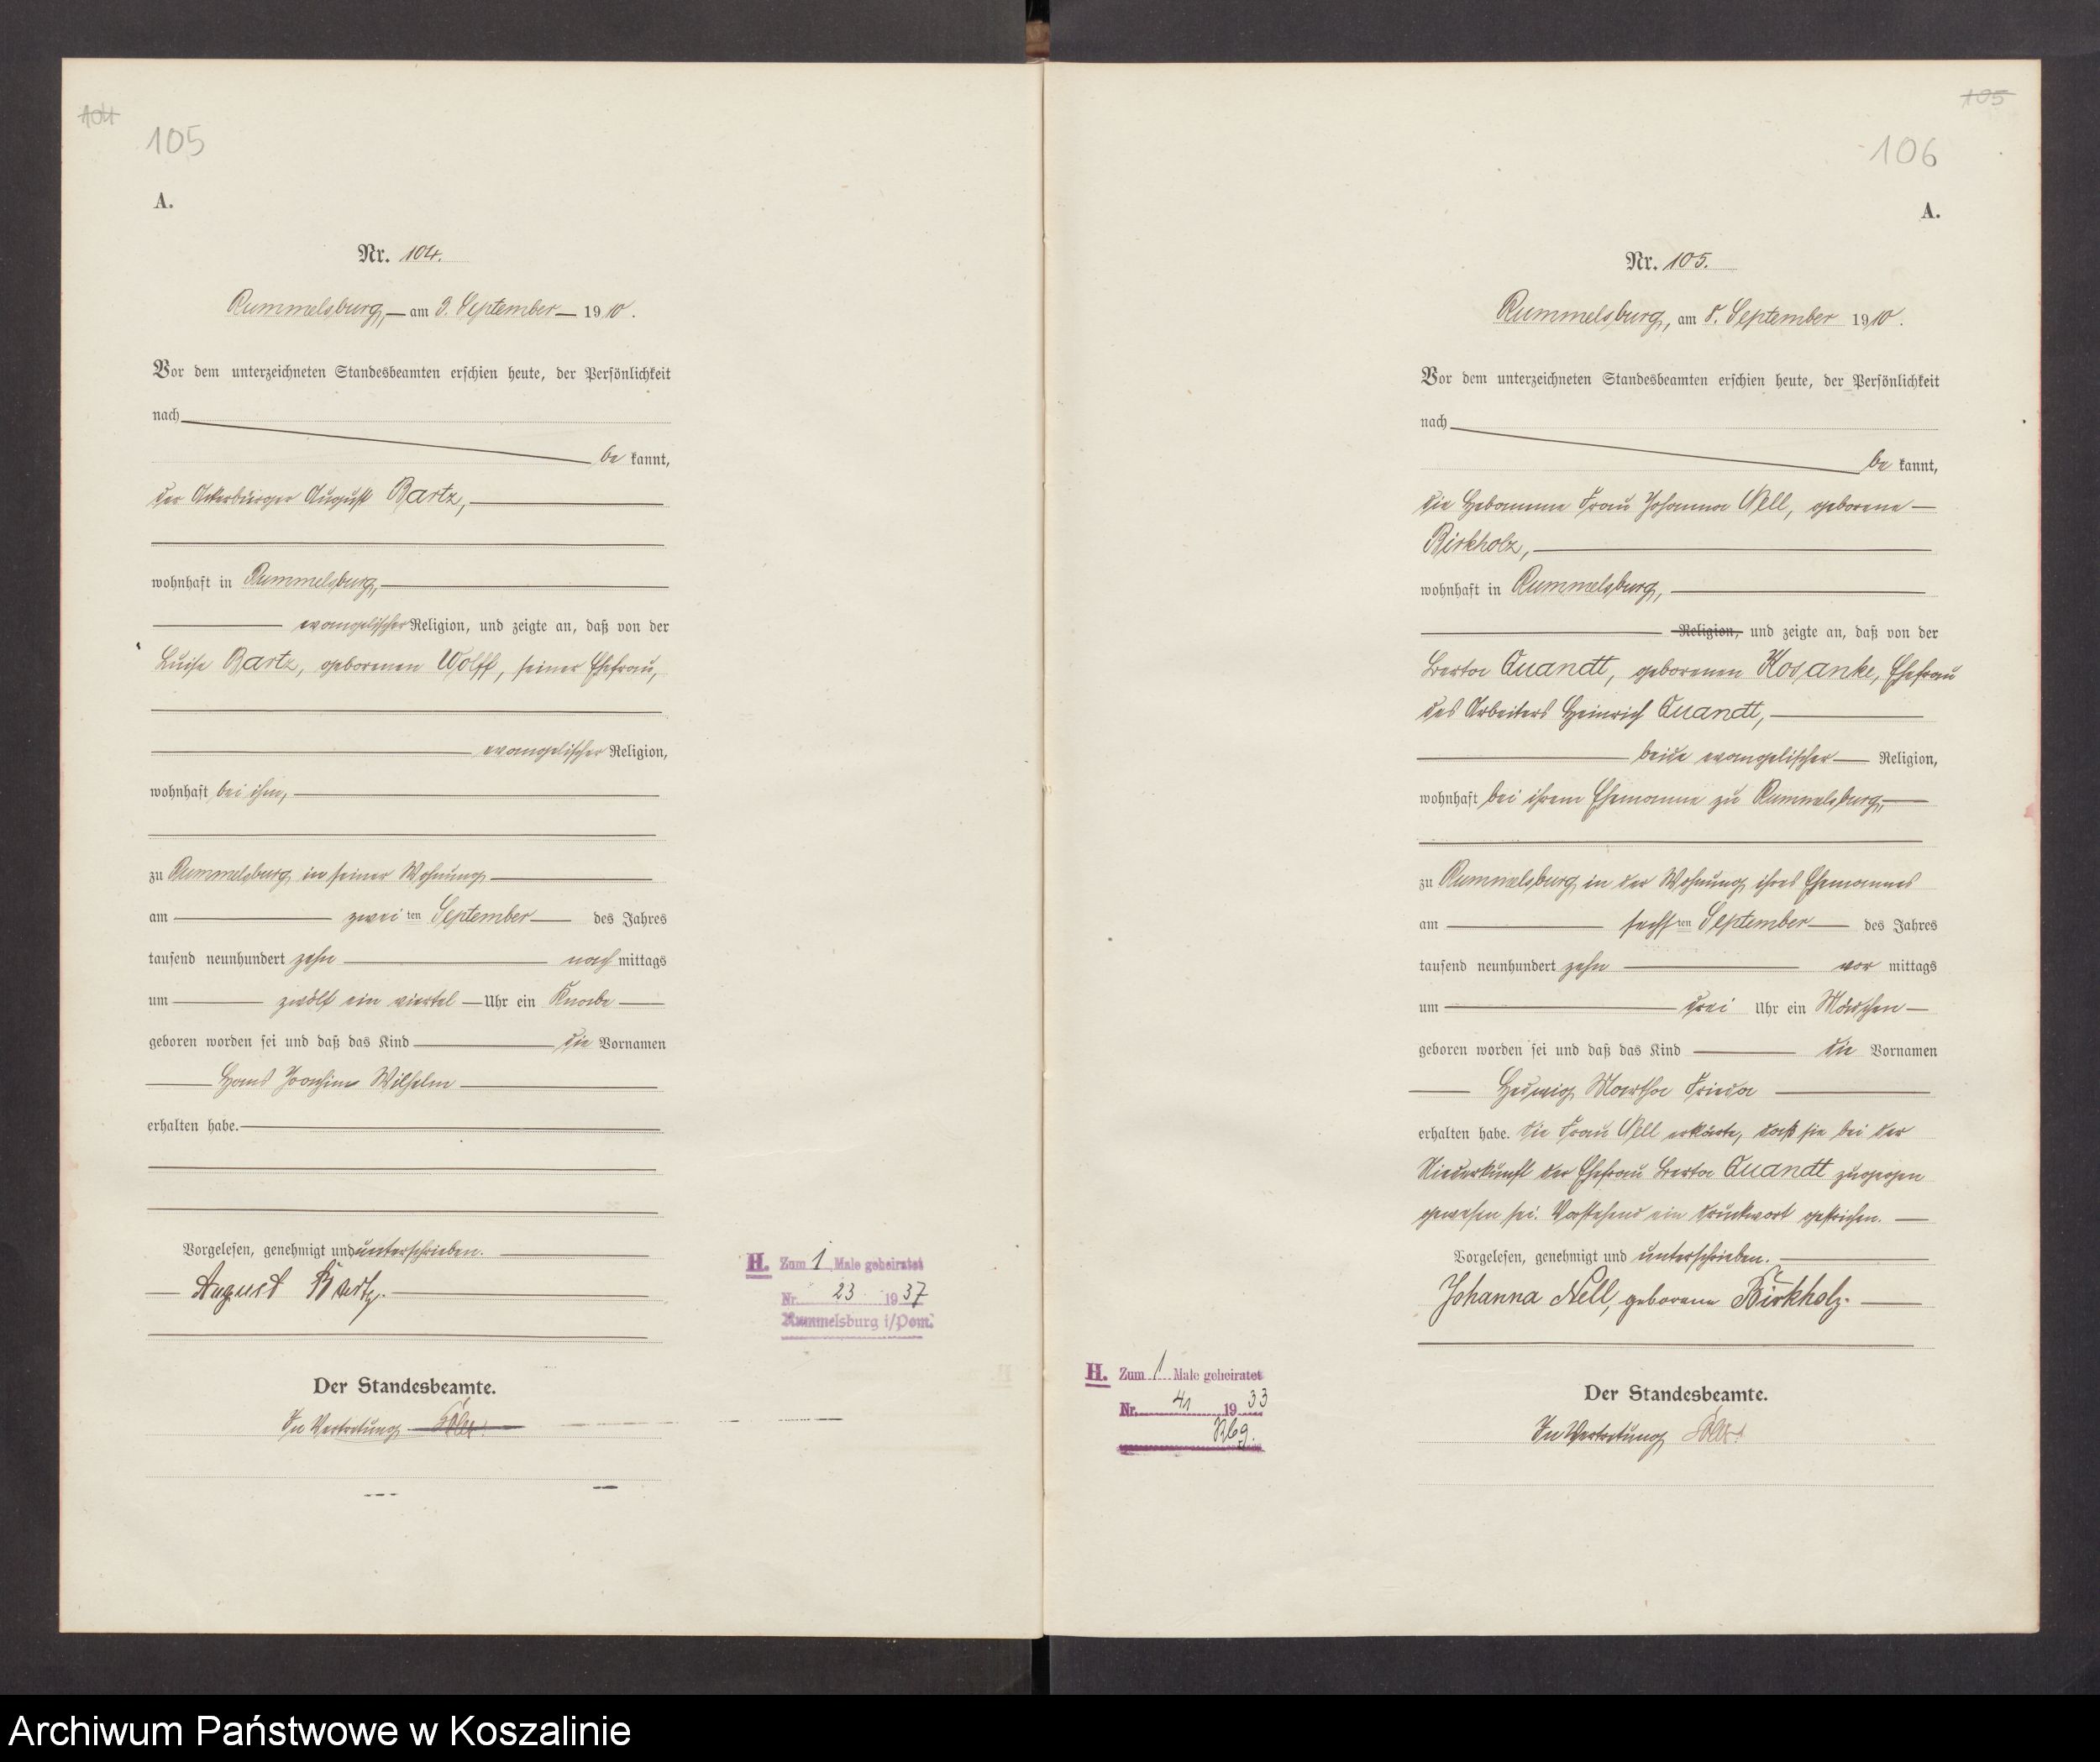 104
105
A.
Nr. 104.
Rummelsburg, am 3. September 1910.
Vor dem unterzeichneten Standesbeamten erschien heute, der Persönlichkeit
nach
be kannt,
der Ackerbürger August Bartz,
wohnhaft in Rummelsburg,
evangelischer Religion, und zeigte an, daß von der
Luise Bartz, geborenen Wolff, seiner Ehefrau,
evangelischer Religion,
wohnhaft bei ihm,
zu Rummelsburg in seiner Wohnung
am zwei ten September des Jahres
tausend neunhundert zehn nach mittags
um zwölf ein viertel Uhr ein Knabe
geboren worden sei und daß das Kind die Vornamen
Hans Joachim Wilhelm
erhalten habe.
Vorgelesen, genehmigt und unterschrieben.
August Bartz.
Der Standesbeamte.
In Vertretung
H. Zum 1 Male geheiratet
Nr. 23 1937
Rummelsburg i/Pom.
105
106
A.
Nr. 105.
Rummelsburg, am 8. September 1910.
Vor dem unterzeichneten Standesbeamten erschien heute, der Persönlichkeit
nach
be kannt,
die Hebamme Frau Johanna Nell, geborene
Birkholz,
wohnhaft in Rummelsburg,
Religion, und zeigte an, daß von der
Berta Quandt, geborenen Kosanke, Ehefrau
des Arbeiters Heinrich Quandt,
beide evangelischer Religion,
wohnhaft bei ihrem Ehemanne zu Rummelsburg,
zu Rummelsburg in der Wohnung ihres Ehemannes
am sechs ten September des Jahres
tausend neunhundert zehn vor mittags
um drei Uhr ein Mädchen
geboren worden sei und daß das Kind die Vornamen
Hedwig Martha Frieda
erhalten habe. Die Frau Nell erklärte, daß sie bei der
Niederkunft der Ehefrau Berta Quandt zugegen
gewesen sei. Vorstehend ein Druckwort gestrichen.
Vorgelesen, genehmigt und unterschrieben.
Johanna Nell, geborene Birkholz.
Der Standesbeamte.
In Vertretung
H. Zum 1 Male geheiratet
Nr. 41 1933
Rbg.
Archiwum Państwowe w Koszalinie